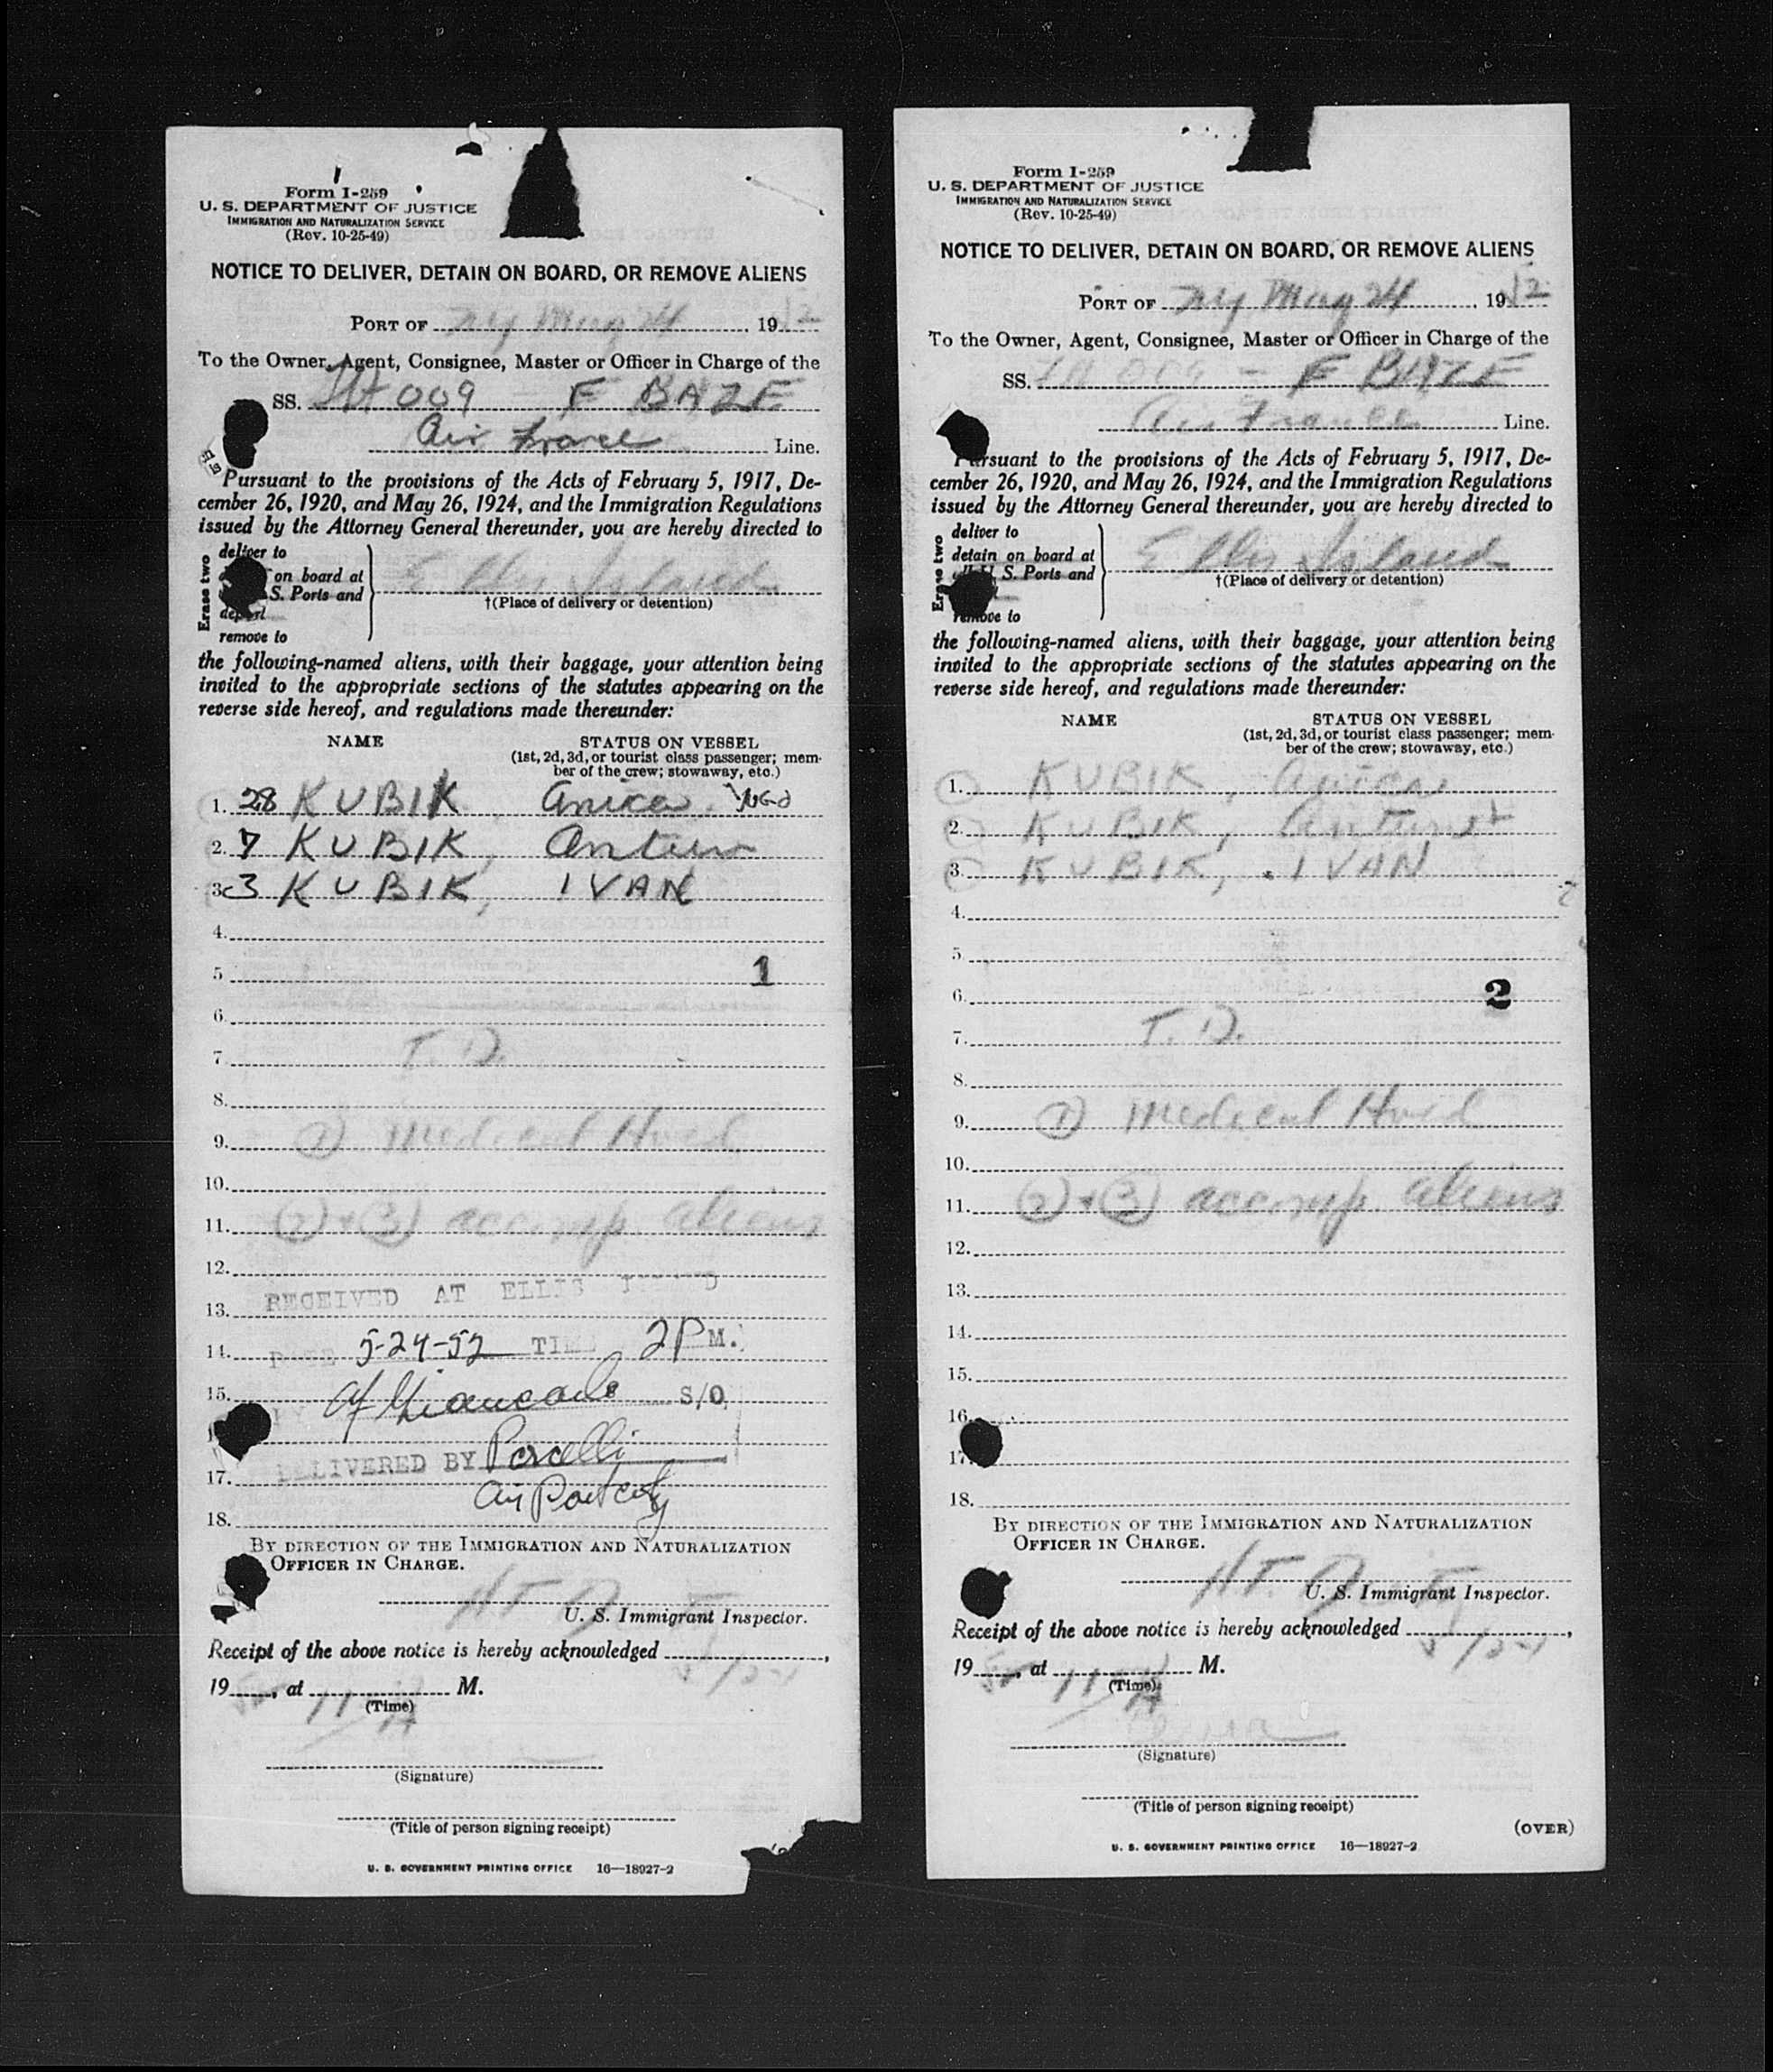 Form I-259
U. S. DEPARTMENT OF JUSTICE
IMMIGRATION AND NATURALIZATION SERVICE
(Rev. 10-25-49)
NOTICE TO DELIVER, DETAIN ON BOARD, OR REMOVE ALIENS
PORT OF ny May 24, 1952
To the Owner, Agent, Consignee, Master or Officer in Charge of the
SS. 009 F BAZE
Air France Line.
Pursuant to the provisions of the Acts of February 5, 1917, De-
cember 26, 1920, and May 26, 1924, and the Immigration Regulations
issued by the Attorney General thereunder, you are hereby directed to
Erase two
deliver to
on board at
S. Ports and
deport
remove to
Ellis Island
†(Place of delivery or detention)
the following-named aliens, with their baggage, your attention being
invited to the appropriate sections of the statutes appearing on the
reverse side hereof, and regulations made thereunder:
NAME STATUS ON VESSEL
(1st, 2d, 3d, or tourist class passenger; mem-
ber of the crew; stowaway, etc.)
1. 28 KUBIK, Anica Yugo
2. 7 KUBIK, Antun
3. 3 KUBIK, IVAN
4.
5. 1
6.
7. T. D.
8.
9. (1) Medical Hold
10.
11. (2) + (3) accomp. aliens
12.
RECEIVED AT ELLIS ISLAND
13.
14. DATE 5-24-52 TIME 2P M.
15. S/O
DELIVERED BY Porcelli
17.
Air Port
18.
BY DIRECTION OF THE IMMIGRATION AND NATURALIZATION
OFFICER IN CHARGE.
U. S. Immigrant Inspector.
Receipt of the above notice is hereby acknowledged 5/24,
1952, at 11 A M.
(Time)
(Signature)
(Title of person signing receipt)
U. S. GOVERNMENT PRINTING OFFICE 16—18927-2
Form I-259
U. S. DEPARTMENT OF JUSTICE
IMMIGRATION AND NATURALIZATION SERVICE
(Rev. 10-25-49)
NOTICE TO DELIVER, DETAIN ON BOARD, OR REMOVE ALIENS
PORT OF ny May 24, 1952
To the Owner, Agent, Consignee, Master or Officer in Charge of the
SS. 009 – F BAZE
Air France Line.
Pursuant to the provisions of the Acts of February 5, 1917, De-
cember 26, 1920, and May 26, 1924, and the Immigration Regulations
issued by the Attorney General thereunder, you are hereby directed to
Erase two
deliver to
detain on board at
all U. S. Ports and
remove to
Ellis Island
†(Place of delivery or detention)
the following-named aliens, with their baggage, your attention being
invited to the appropriate sections of the statutes appearing on the
reverse side hereof, and regulations made thereunder:
NAME STATUS ON VESSEL
(1st, 2d, 3d, or tourist class passenger; mem-
ber of the crew; stowaway, etc.)
1. KUBIK, Anica
2. KUBIK, Antun
3. KUBIK, IVAN
4.
5.
6. 2
7. T. D.
8.
9. (1) Medical Hold
10.
11. (2) + (3) accomp. aliens
12.
13.
14.
15.
16.
17.
18.
BY DIRECTION OF THE IMMIGRATION AND NATURALIZATION
OFFICER IN CHARGE.
U. S. Immigrant Inspector.
Receipt of the above notice is hereby acknowledged 5/24,
1952, at 11 A M.
(Time)
(Signature)
(Title of person signing receipt)
(OVER)
U. S. GOVERNMENT PRINTING OFFICE 16—18927-2